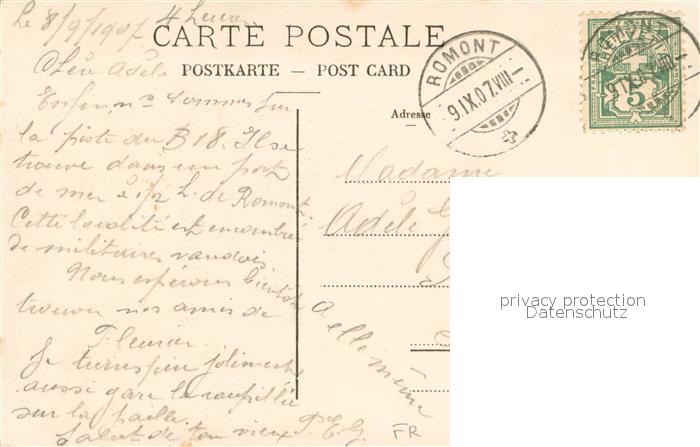 Le 8/9/1907 4 heures
CARTE POSTALE
POSTKARTE — POST CARD
Adresse
ROMONT
9.IX.07.VIII—
HELVETIA
5
Adèle
Enfin, sommes sur
la piste du B 18. Il se
trouve dans un port
de mer à 1/2 h. de Romont.
Cette localité est encombrée
de militaires vaudois
Nous espérons bientôt
trouver nos amis de
Fleurier
Je turne joliment
aussi gare la roupillée
sur la paille.
Salut de ton vieux P.E.G.
Madame
Adèle G
FR
privacy protection
Datenschutz